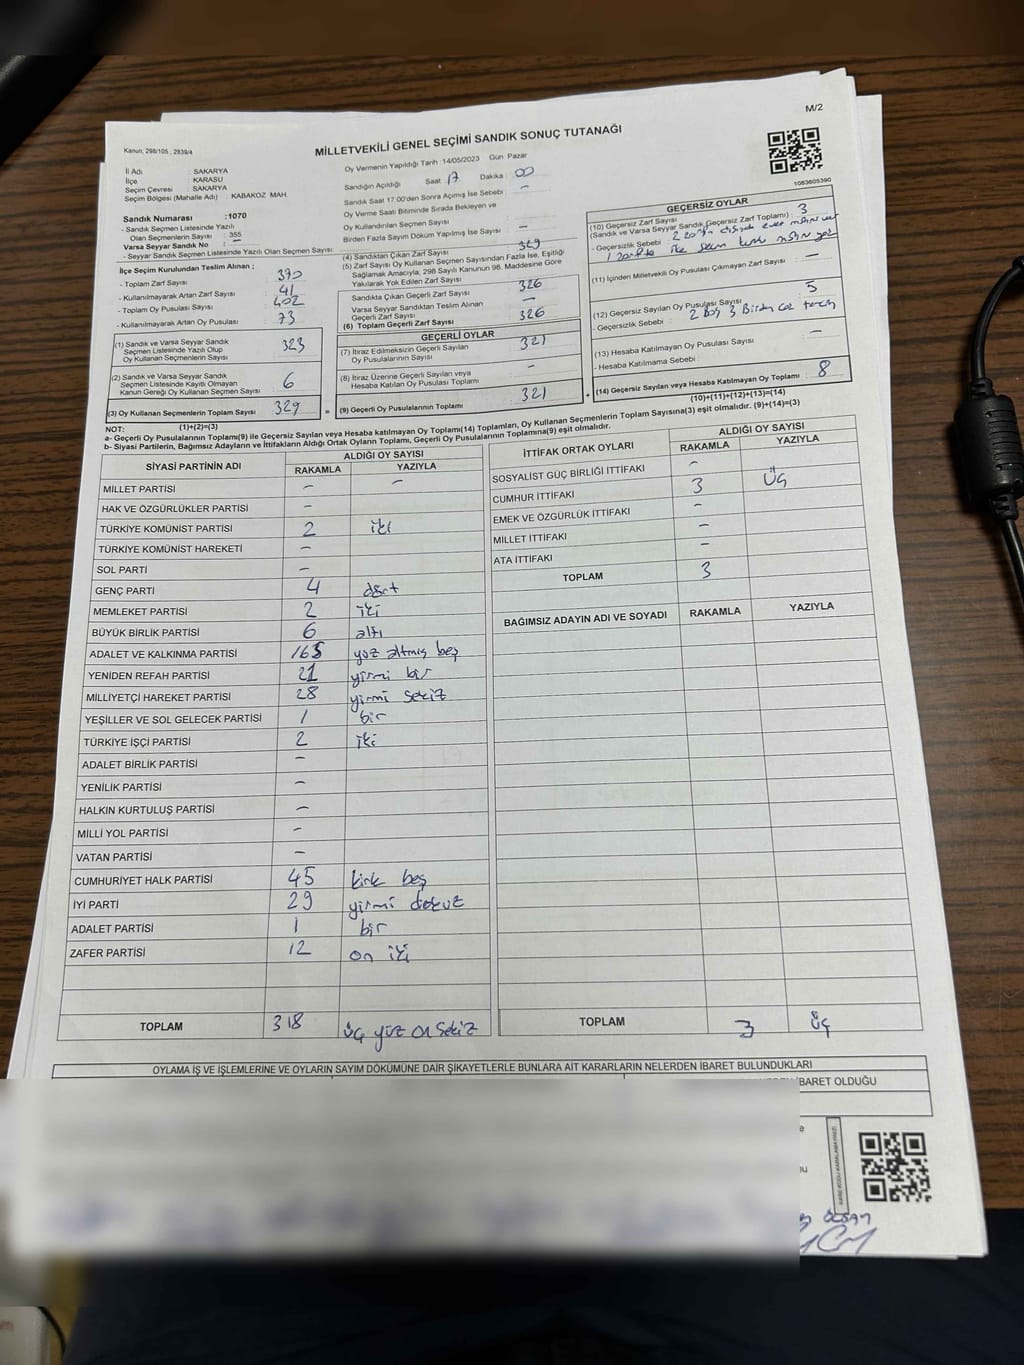 M/2
Kanun, 298/105 , 2839/4
MİLLETVEKİLİ GENEL SEÇİMİ SANDIK SONUÇ TUTANAĞI
İl Adı SAKARYA
İlçe KARASU
Seçim Çevresi SAKARYA
Seçim Bölgesi (Mahalle Adı) : KABAKOZ MAH.
Sandık Numarası :1070
- Sandık Seçmen Listesinde Yazılı
Olan Seçmenlerin Sayısı 355
Varsa Seyyar Sandık No –
- Seyyar Sandık Seçmen Listesinde Yazılı Olan Seçmen Sayısı
İlçe Seçim Kurulundan Teslim Alınan ;
- Toplam Zarf Sayısı 370
- Kullanılmayarak Artan Zarf Sayısı 41
- Toplam Oy Pusulası Sayısı 402
- Kullanılmayarak Artan Oy Pusulası 73
(1) Sandık ve Varsa Seyyar Sandık
Seçmen Listesinde Yazılı Olup
Oy Kullanan Seçmenlerin Sayısı 323
(2) Sandık ve Varsa Seyyar Sandık
Seçmen Listesinde Kayıtlı Olmayan
Kanun Gereği Oy Kullanan Seçmen Sayısı 6
(3) Oy Kullanan Seçmenlerin Toplam Sayısı 329
(1)+(2)=(3)
Oy Vermenin Yapıldığı Tarih :14/05/2023 Gün Pazar
Sandığın Açıldığı Saat 17 Dakika 00
Sandık Saat 17:00'den Sonra Açılmış İse Sebebi –
Oy Verme Saati Bitiminde Sırada Bekleyen ve
Oy Kullandırılan Seçmen Sayısı –
Birden Fazla Sayım Döküm Yapılmış İse Sayısı –
(4) Sandıktan Çıkan Zarf Sayısı 329
(5) Zarf Sayısı Oy Kullanan Seçmen Sayısından Fazla İse, Eşitliği
Sağlamak Amacıyla, 298 Sayılı Kanunun 98. Maddesine Göre
Yakılarak Yok Edilen Zarf Sayısı
Sandıkta Çıkan Geçerli Zarf Sayısı 326
Varsa Seyyar Sandıktan Teslim Alınan
Geçerli Zarf Sayısı –
(6) Toplam Geçerli Zarf Sayısı 326
GEÇERLİ OYLAR
(7) İtiraz Edilmeksizin Geçerli Sayılan
Oy Pusulalarının Sayısı 321
(8) İtiraz Üzerine Geçerli Sayılan veya
Hesaba Katılan Oy Pusulası Toplamı –
= (9) Geçerli Oy Pusulalarının Toplamı 321 +
1083605390
GEÇERSİZ OYLAR
(10) Geçersiz Zarf Sayısı 3
(Sandık ve Varsa Seyyar Sandık Geçersiz Zarf Toplamı) :
- Geçersizlik Sebebi :
(11) İçinden Milletvekili Oy Pusulası Çıkmayan Zarf Sayısı –
(12) Geçersiz Sayılan Oy Pusulası Sayısı 5
- Geçersizlik Sebebi : 2 Boş 3 Birden
(13) Hesaba Katılmayan Oy Pusulası Sayısı –
- Hesaba Katılmama Sebebi
(14) Geçersiz Sayılan veya Hesaba Katılmayan Oy Toplamı 8
(10)+(11)+(12)+(13)=(14)
NOT:
a- Geçerli Oy Pusulalarının Toplamı(9) ile Geçersiz Sayılan veya Hesaba Katılmayan Oy Toplamı(14) Toplamları, Oy Kullanan Seçmenlerin Toplam Sayısına(3) eşit olmalıdır. (9)+(14)=(3)
b- Siyasi Partilerin, Bağımsız Adayların ve İttifakların Aldığı Ortak Oyların Toplamı, Geçerli Oy Pusulalarının Toplamına(9) eşit olmalıdır.
SİYASİ PARTİNİN ADI ALDIĞI OY SAYISI
RAKAMLA YAZIYLA
MİLLET PARTİSİ – –
HAK VE ÖZGÜRLÜKLER PARTİSİ –
TÜRKİYE KOMÜNİST PARTİSİ 2 iki
TÜRKİYE KOMÜNİST HAREKETİ –
SOL PARTİ –
GENÇ PARTİ 4 dört
MEMLEKET PARTİSİ 2 iki
BÜYÜK BİRLİK PARTİSİ 6 altı
ADALET VE KALKINMA PARTİSİ 165 yüz altmış beş
YENİDEN REFAH PARTİSİ 21 yirmi bir
MİLLİYETÇİ HAREKET PARTİSİ 28 yirmi sekiz
YEŞİLLER VE SOL GELECEK PARTİSİ 1 bir
TÜRKİYE İŞÇİ PARTİSİ 2 iki
ADALET BİRLİK PARTİSİ –
YENİLİK PARTİSİ –
HALKIN KURTULUŞ PARTİSİ –
MİLLİ YOL PARTİSİ –
VATAN PARTİSİ –
CUMHURİYET HALK PARTİSİ 45 kırk beş
İYİ PARTİ 29 yirmi dokuz
ADALET PARTİSİ 1 bir
ZAFER PARTİSİ 12 on iki
TOPLAM 318 üç yüz on sekiz
İTTİFAK ORTAK OYLARI ALDIĞI OY SAYISI
RAKAMLA YAZIYLA
SOSYALİST GÜÇ BİRLİĞİ İTTİFAKI –
CUMHUR İTTİFAKI 3 üç
EMEK VE ÖZGÜRLÜK İTTİFAKI –
MİLLET İTTİFAKI –
ATA İTTİFAKI –
TOPLAM 3
BAĞIMSIZ ADAYIN ADI VE SOYADI RAKAMLA YAZIYLA
TOPLAM 3 üç
OYLAMA İŞ VE İŞLEMLERİNE VE OYLARIN SAYIM DÖKÜMÜNE DAİR ŞİKAYETLERLE BUNLARA AİT KARARLARIN NELERDEN İBARET BULUNDUKLARI
İBARET OLDUĞU